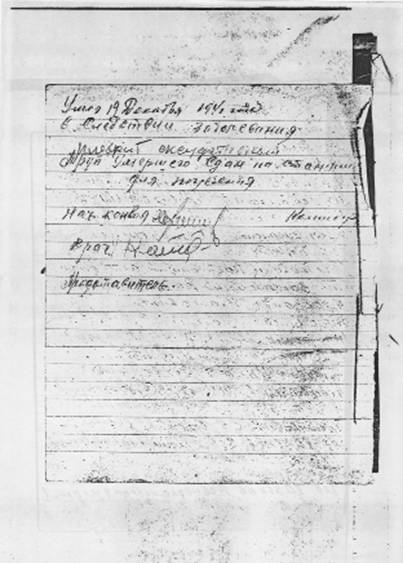 Умер 19 Декабря 194 года
в следствии заболевания
плеврит эксудативный
Труп умершего сдан на станции
для погребения
Нач. конвоя
врач
Представитель.